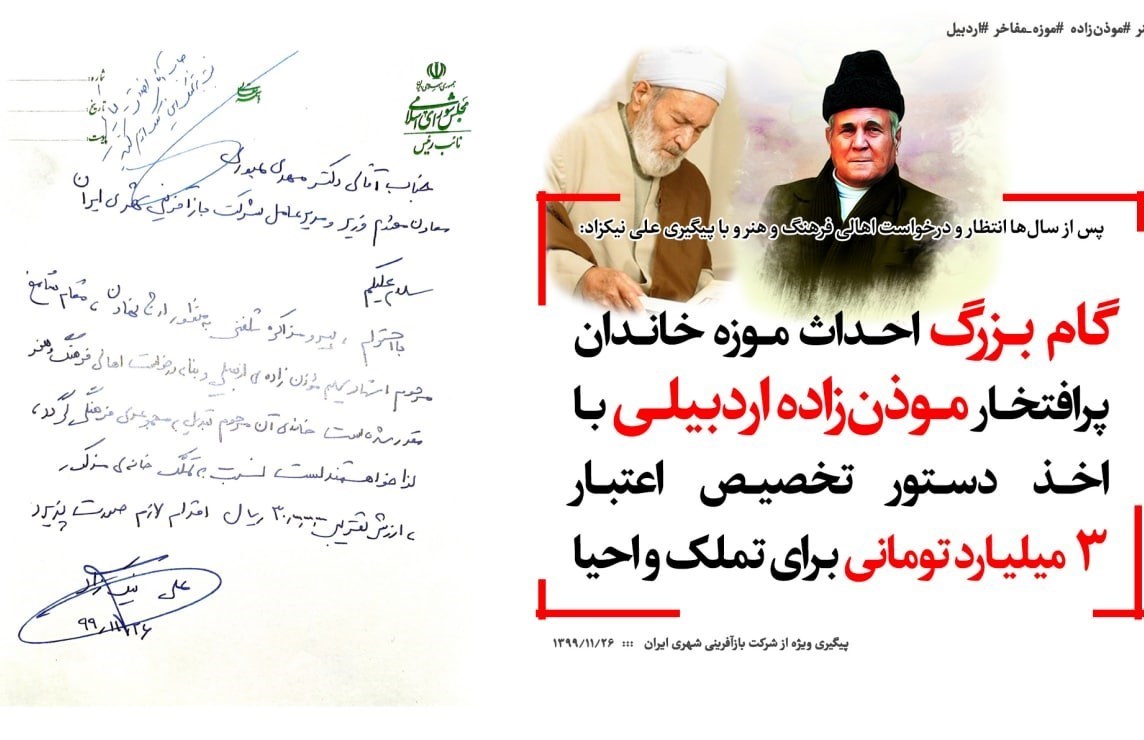 نر #موذن‌زاده #موزه_مفاخر #اردبیل
پس از سال‌ها انتظار و درخواست اهالی فرهنگ و هنر و با پیگیری علی نیکزاد:
گام بزرگ احداث موزه خاندان
پرافتخار موذن‌زاده اردبیلی با
اخذ دستور تخصیص اعتبار
۳ میلیارد تومانی برای تملک و احیا
پیگیری ویژه از شرکت بازآفرینی شهری ایران ::: ۱۳۹۹/۱۱/۲۶
جمهوری اسلامی ایران
مجلس شورای اسلامی
نائب رئیس
شماره:
تاریخ:
پیوست:
جناب آقای دکتر مهدی عبوری
معاون محترم وزیر و مدیرعامل شرکت بازآفرینی شهری ایران
سلام علیکم
با احترام، پیرو مذاکره تلفنی به منظور ارج نهادن به مقام شامخ
مرحوم استاد سلیم موذن زاده ی اردبیلی و بنا به درخواست اهالی فرهنگ و هنر
مقرر شده است خانه‌ی آن مرحوم تبدیل به مجموعه‌ی فرهنگی گردد،
لذا خواهشمند است نسبت به تملک خانه‌ی مذکور
به ارزش تقریبی ریال اقدام لازم صورت پذیرد
علی نیکزاد
۹۹/۱۱/۲۶